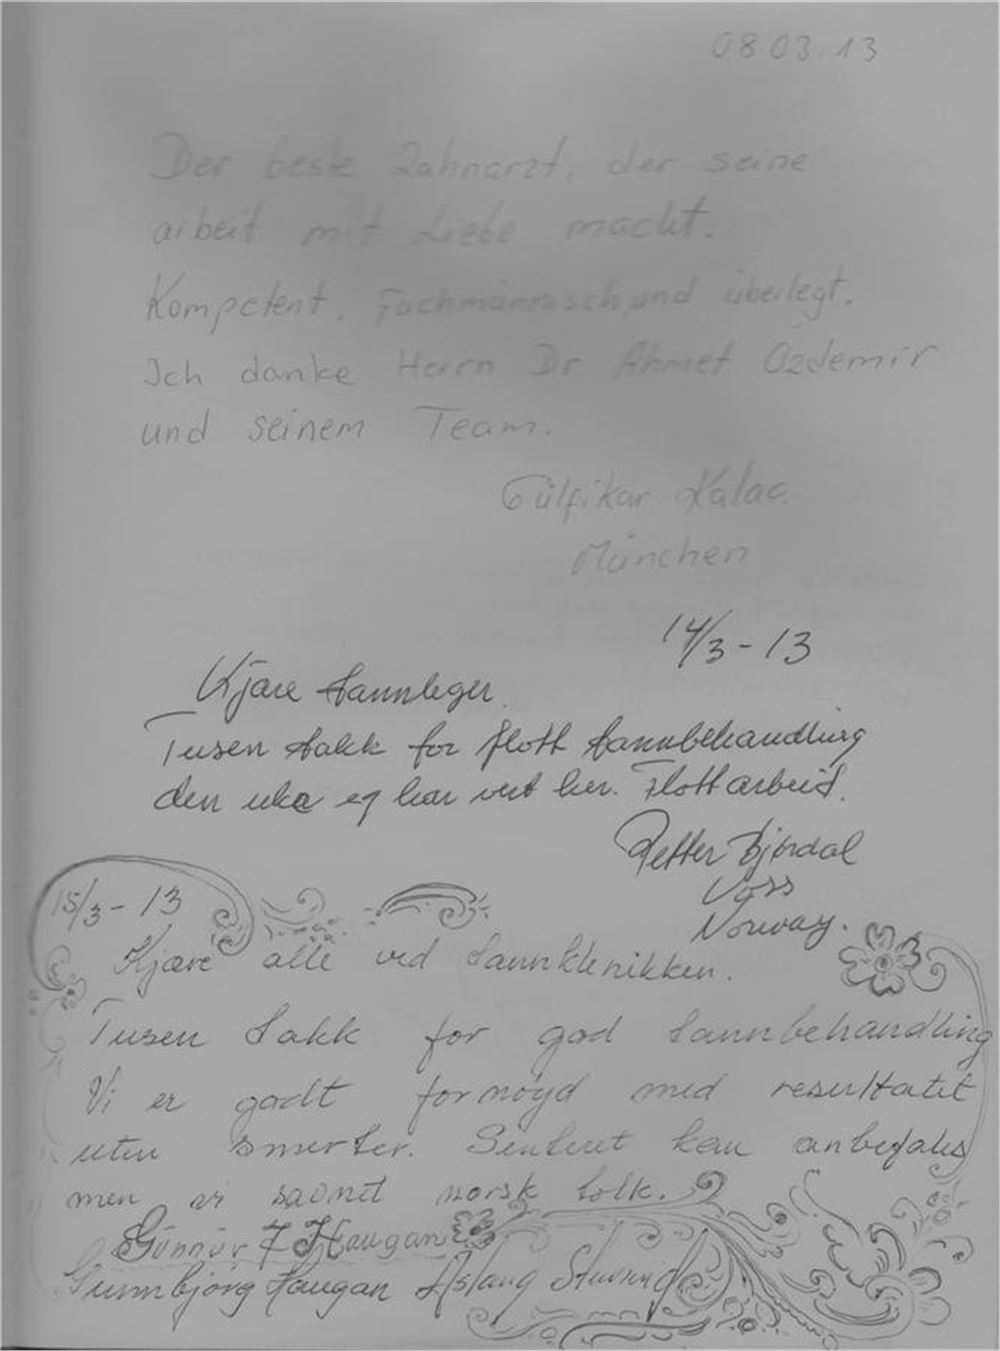 08.03.13
Der beste Zahnarzt, der seine
arbeit mit Liebe macht.
Kompetent, Fachmännisch und überlegt.
Ich danke Herrn Dr Ahmet Özdemir
und seinem Team.
Gülfikar Kalac
München
14/3-13
Kjære tannleger.
Tusen takk for flott tannbehandling
den uka eg har vert her. Flott arbeid.
Petter Bjørdal
Voss
Norway.
15/3-13
Kjære alle ved tannklenikken.
Tusen takk for god tannbehandling
Vi er godt fornøyd med resultatet
uten smerter. Senteret kan anbefales
men vi savnet norsk tolk.
Gunnar F Haugan
Gunnbjørg Haugan Aslaug